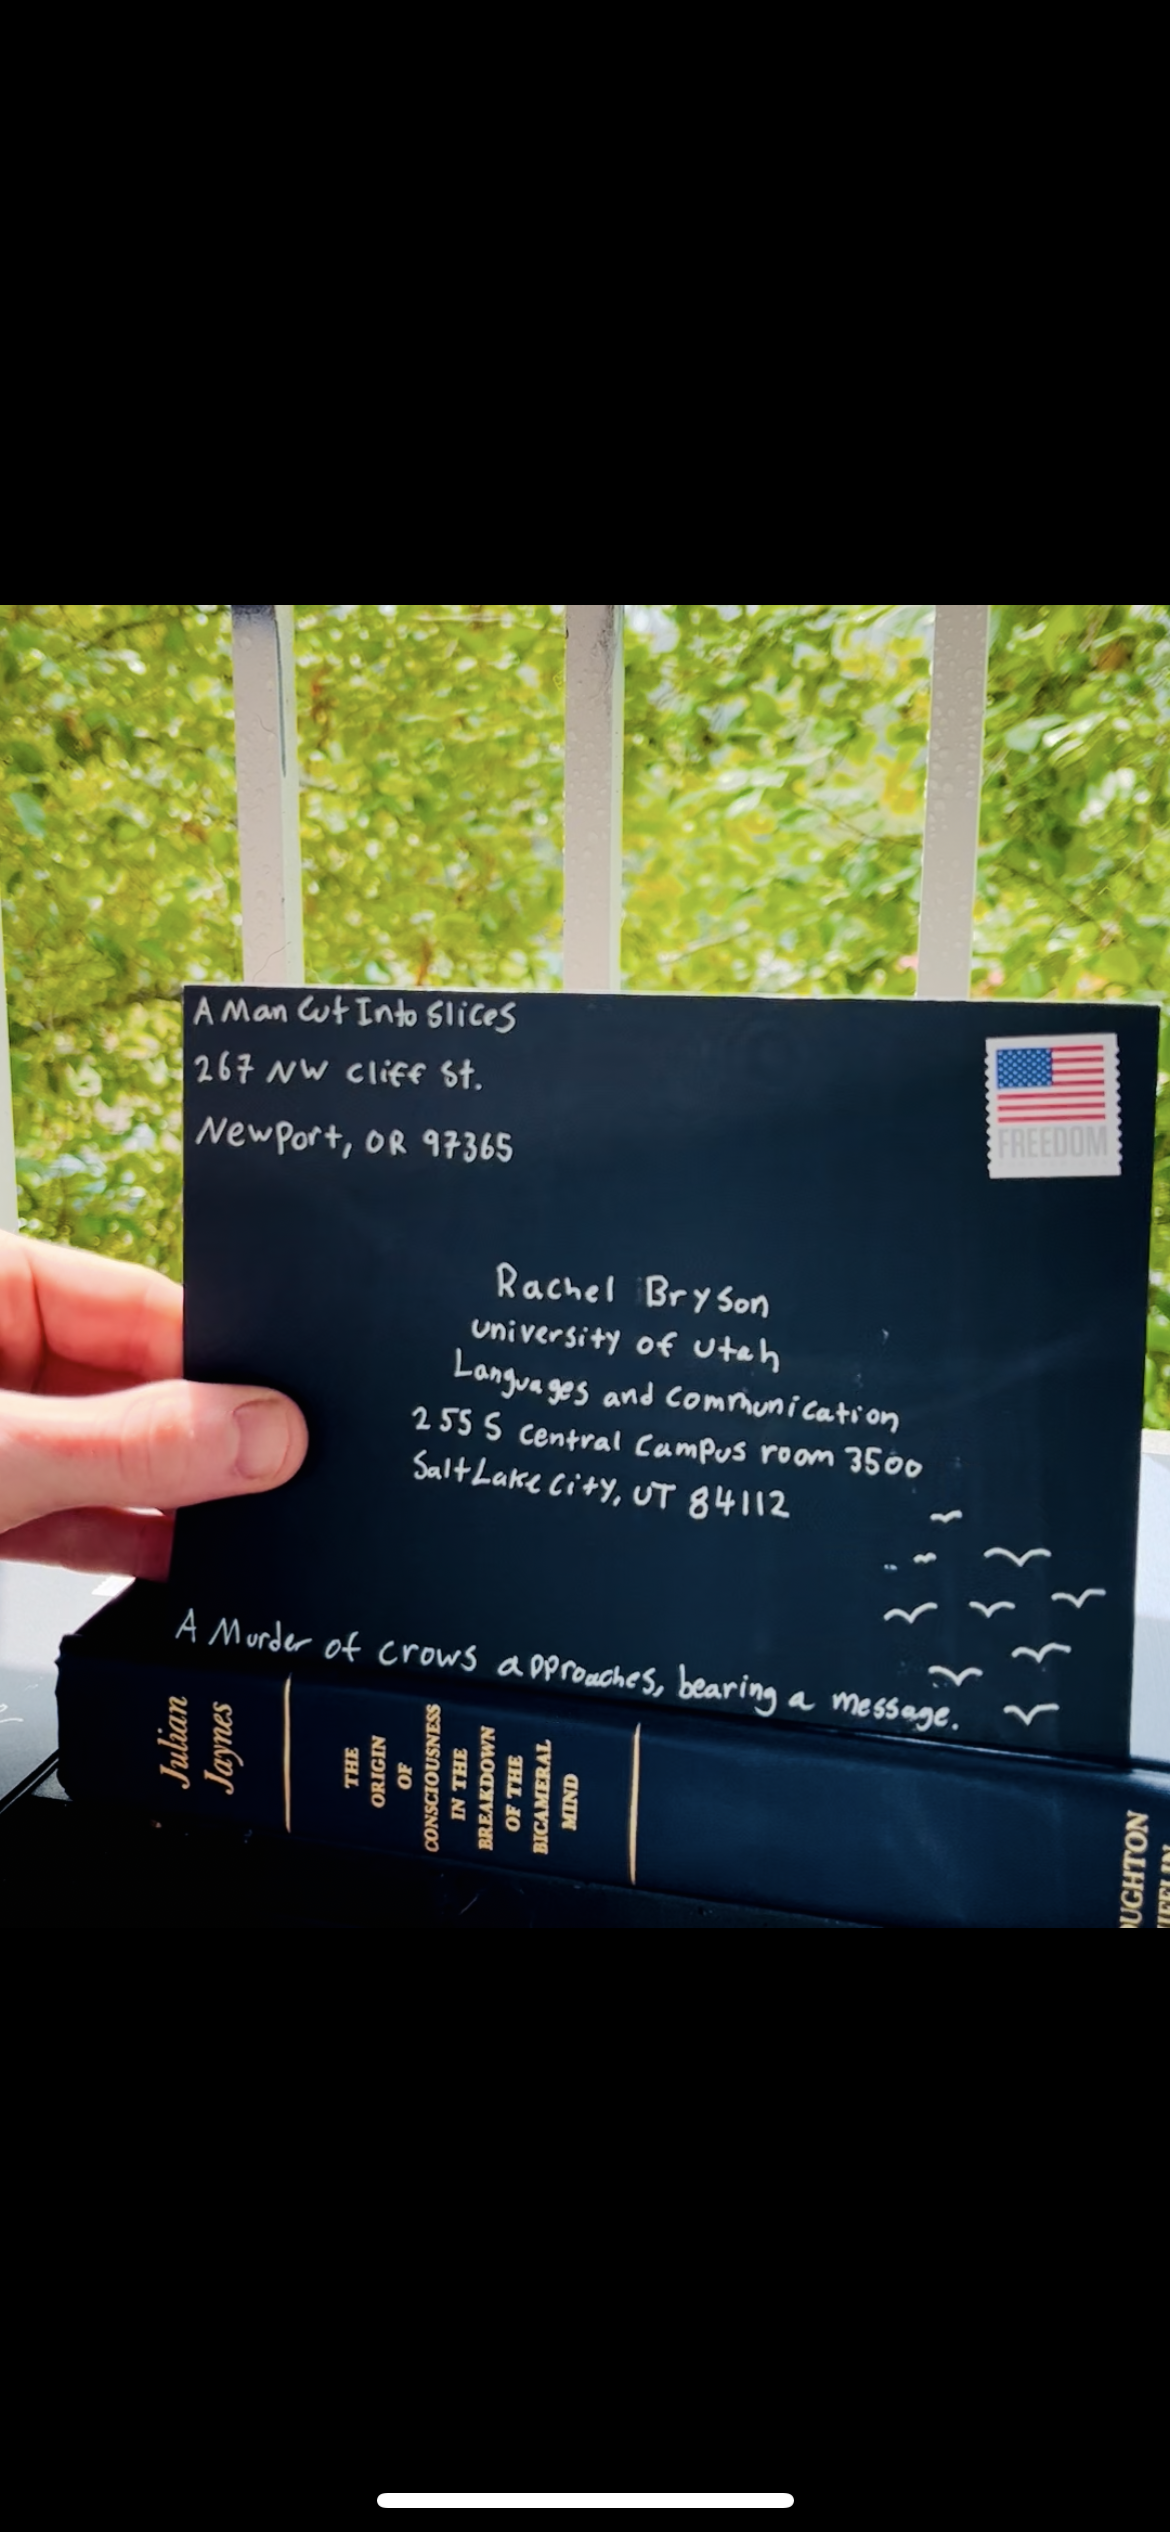 A Man Cut Into Slices
267 NW Cliff St.
Newport, OR 97365
FREEDOM
Rachel Bryson
University of Utah
Languages and Communication
255 S Central Campus room 3500
Salt Lake City, UT 84112
A Murder of crows approaches, bearing a message.
Julian
Jaynes
THE
ORIGIN
OF
CONSCIOUSNESS
IN THE
BREAKDOWN
OF THE
BICAMERAL
MIND
OUGHTON